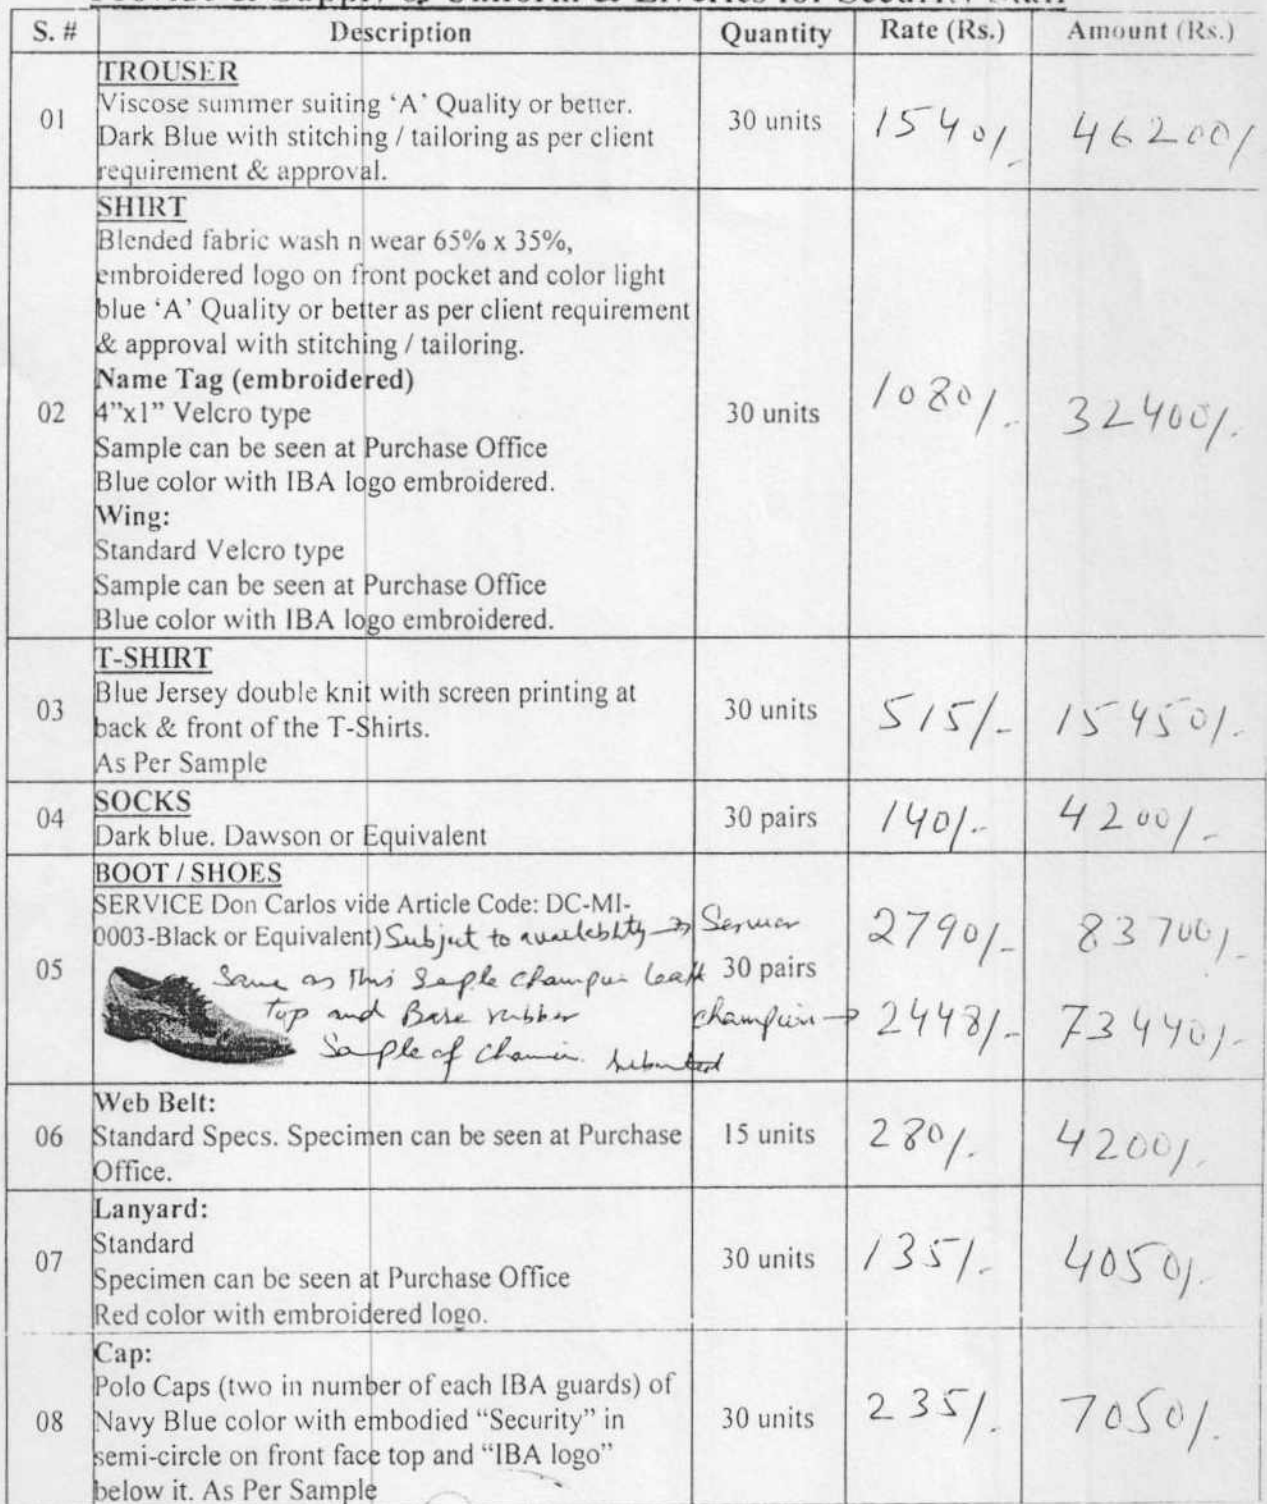 Provide & Supply of Uniform & Liveries for Security Staff
S. # Description Quantity Rate (Rs.) Amount (Rs.)
01
TROUSER
Viscose summer suiting ‘A’ Quality or better.
Dark Blue with stitching / tailoring as per client
requirement & approval.
30 units 1540/- 46200/
02
SHIRT
Blended fabric wash n wear 65% x 35%,
embroidered logo on front pocket and color light
blue ‘A’ Quality or better as per client requirement
& approval with stitching / tailoring.
Name Tag (embroidered)
4”x1” Velcro type
Sample can be seen at Purchase Office
Blue color with IBA logo embroidered.
Wing:
Standard Velcro type
Sample can be seen at Purchase Office
Blue color with IBA logo embroidered.
30 units 1080/- 32400/-
03
T-SHIRT
Blue Jersey double knit with screen printing at
back & front of the T-Shirts.
As Per Sample
30 units 515/- 15450/-
04
SOCKS
Dark blue. Dawson or Equivalent
30 pairs 140/- 4200/-
05
BOOT / SHOES
SERVICE Don Carlos vide Article Code: DC-MI-
0003-Black or Equivalent) Subject to availability → 2790/- 83700/-
Same as this Sample Champion 30 pairs
top and Base rubber Champion → 2448/- 73440/-
Sample of
06
Web Belt:
Standard Specs. Specimen can be seen at Purchase
Office.
15 units 280/- 4200/-
07
Lanyard:
Standard
Specimen can be seen at Purchase Office
Red color with embroidered logo.
30 units 135/- 4050/-
08
Cap:
Polo Caps (two in number of each IBA guards) of
Navy Blue color with embodied “Security” in
semi-circle on front face top and “IBA logo”
below it. As Per Sample
30 units 235/- 7050/-